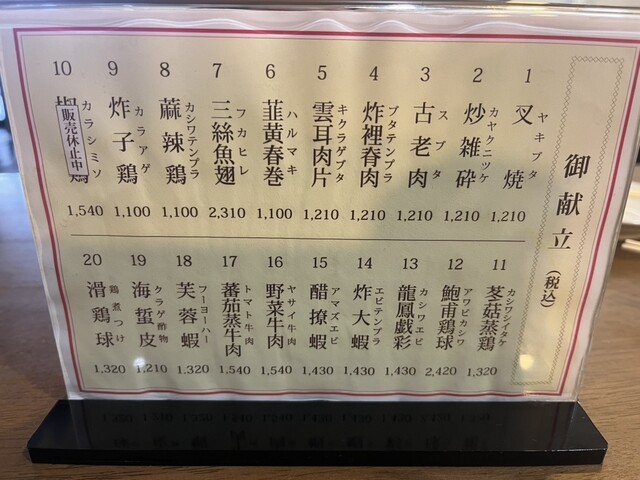 御献立(税込)
1
ヤキブタ
叉焼
1,210
2
カヤクニツケ
炒雑砕
1,210
3
スブタ
古老肉
1,210
4
ブタテンプラ
炸裡脊肉
1,210
5
キクラゲブタ
雲耳肉片
1,210
6
ハルマキ
韮黄春巻
1,100
7
フカヒレ
三絲魚翅
2,310
8
カシワテンプラ
蔴辣鶏
1,100
9
カラアゲ
炸子鶏
1,100
10
カラシミソ
販売休止中
鶏
1,540
11
カシワシイタケ
茎菇蒸鶏
1,320
12
アワビカシワ
鮑甫鶏球
2,420
13
カシワエビ
龍鳳戯彩
1,430
14
エビテンプラ
炸大蝦
1,430
15
アマズエビ
醋撩蝦
1,430
16
ヤサイ牛肉
野菜牛肉
1,540
17
トマト牛肉
蕃茄蒸牛肉
1,540
18
フーヨーハー
芙蓉蝦
1,320
19
クラゲ酢物
海蜇皮
1,210
20
鶏煮つけ
滑鶏球
1,320